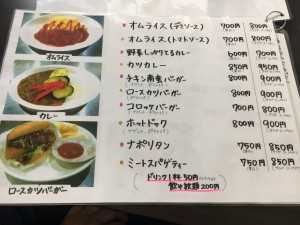 オムライス
カレー
ロースカツバーガー
オムライス(デミソース) 700円 800円
オムライス(トマトソース) 700円 800円
野菜しっかりとるカレー 600円 700円
カツカレー 850円 950円
チキン南蛮バーガー 800円 900円
ロースカツバーガー 800円 900円
コロッケバーガー 700円 800円
ホットドック 800円 900円
ナポリタン 750円 850円
ミートスパゲティー 750円 850円
ドリンク1杯50円
飲み放題200円